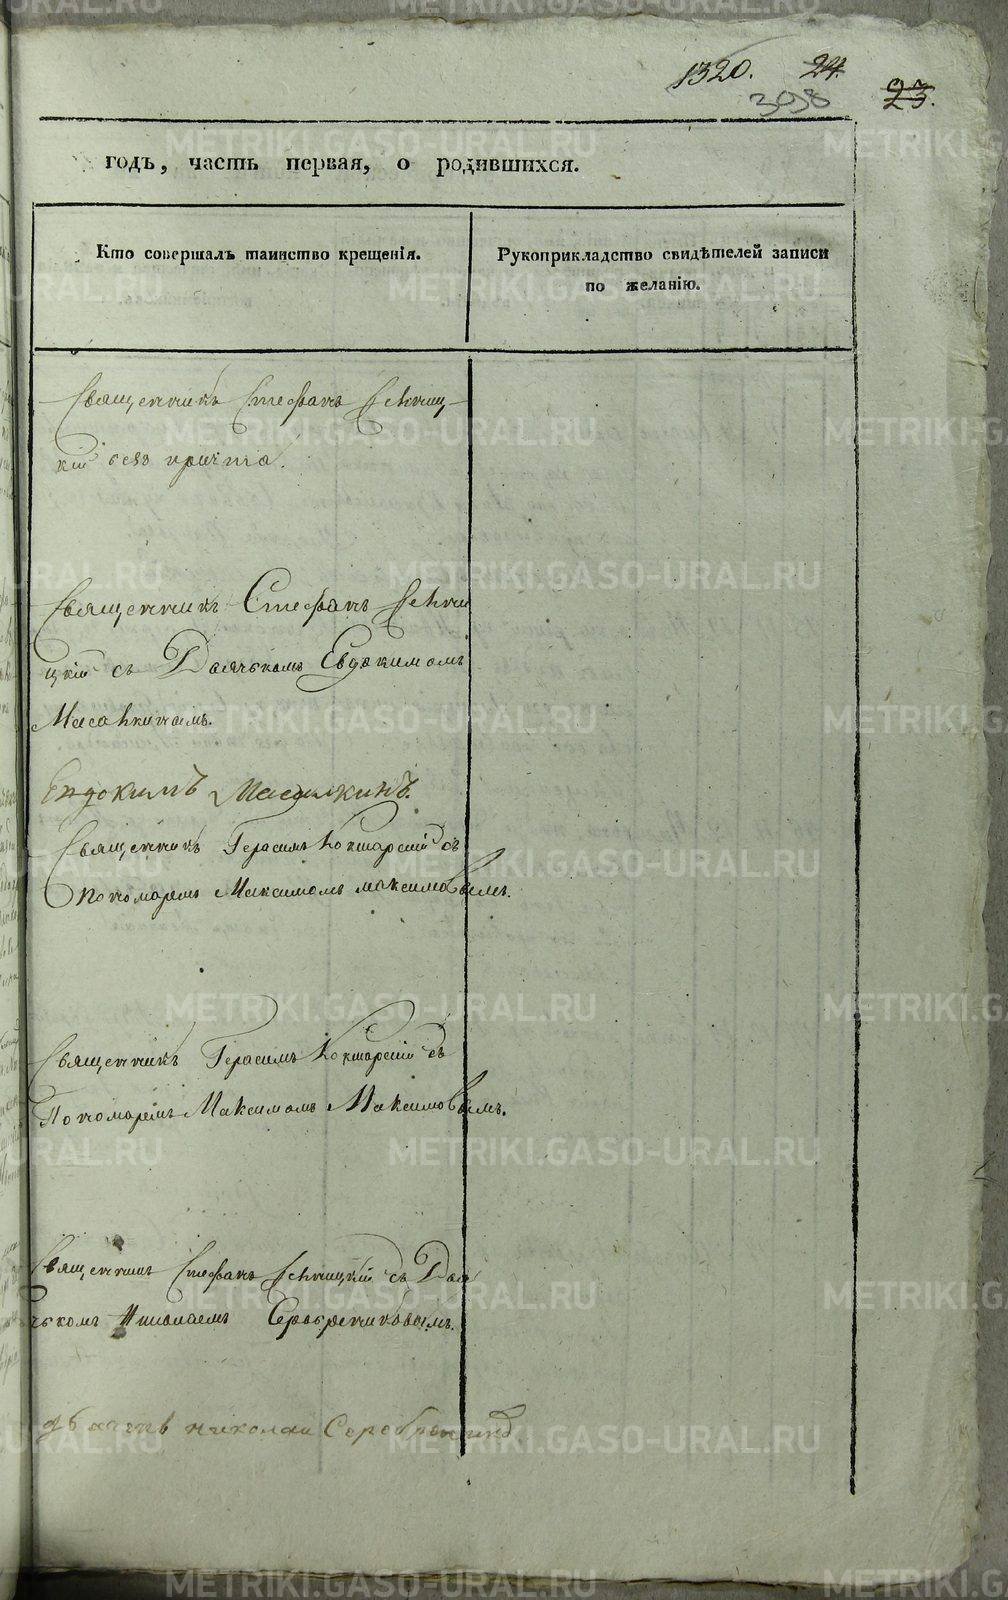 1320. 24.
3058 23.
годъ, часть первая, о родившихся.
Кто совершалъ таинство крещенія.
Рукоприкладство свидѣтелей записи
по желанію.
Священникъ Стефанъ
кій безъ причта.
Священникъ Стефанъ
цкій съ Дьячькомъ Евдокимомъ
Масалкинымъ.
Евдокимъ Масалкинъ.
Священникъ Герасимъ Кокшарскій съ
Пономаремъ Максимомъ Максимовымъ.
Священникъ Герасимъ Кокшарскій съ
Пономаремъ Максимомъ Максимовымъ.
Священникъ Стефанъ съ Дья
чькомъ Николаемъ Серебрениковымъ.
дьячекъ николаи Серебреникъ
METRIKI.GASO-URAL.RU